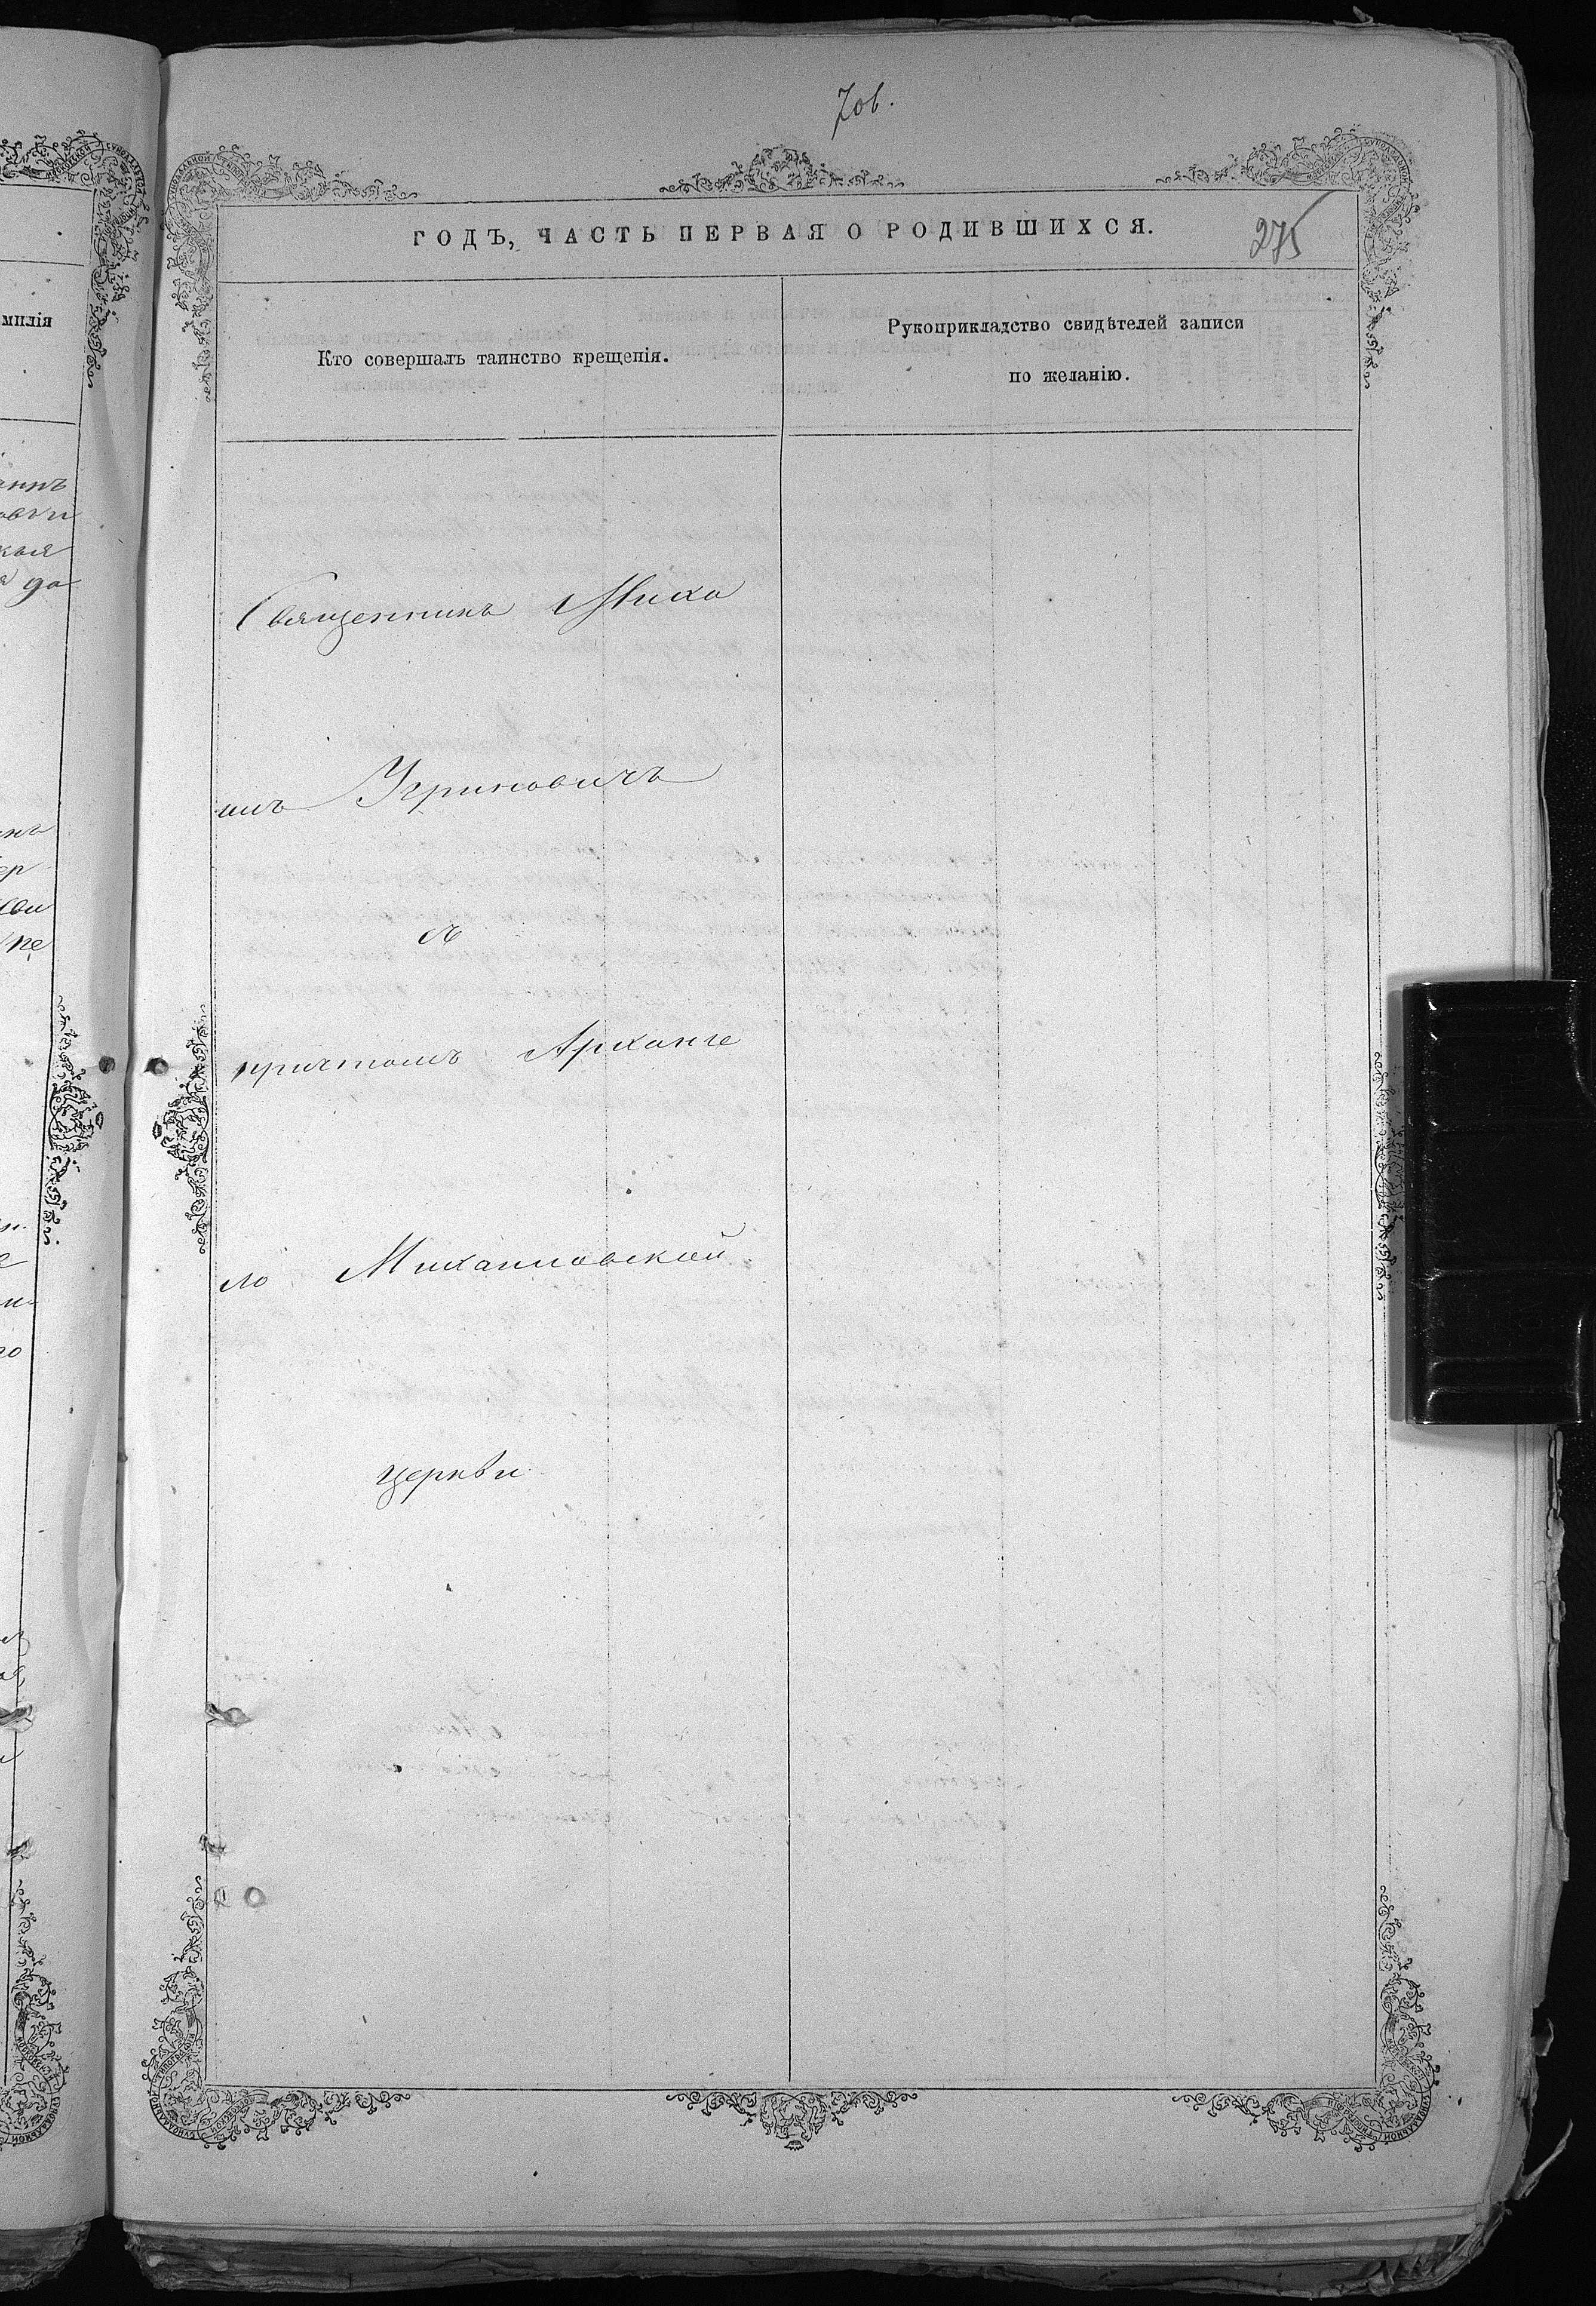 7об.
ГОДЪ, ЧАСТЬ ПЕРВАЯ О РОДИВШИХСЯ.
275
Кто совершалъ таинство крещенія.
Рукоприкладство свидѣтелей записи
по желанію.
Священникъ Миха
илъ Угриновичъ
съ
причтомъ Арханге
ло Михаиловской
церкви
милія